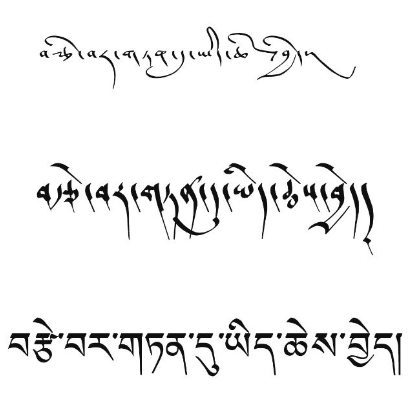 བརྩེ་བར་གཏན་དུ་ཡིད་ཆེས་བྱེད
བརྩེ་བར་གཏན་དུ་ཡིད་ཆེས་བྱེད།
བརྩེ་བར་གཏན་དུ་ཡིད་ཆེས་བྱེད།